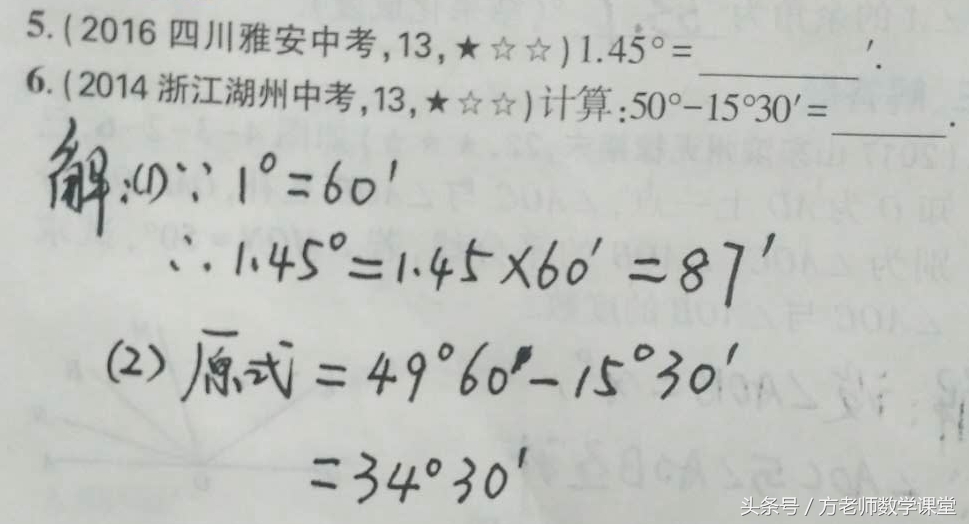 5.(2016四川雅安中考,13,★☆☆)1.45°=________′.
6.(2014浙江湖州中考,13,★☆☆)计算:50°-15°30′=______.
解:(1)∵1°=60′
∴1.45°=1.45×60′=87′
(2)原式=49°60′-15°30′
=34°30′
头条号/方老师数学课堂